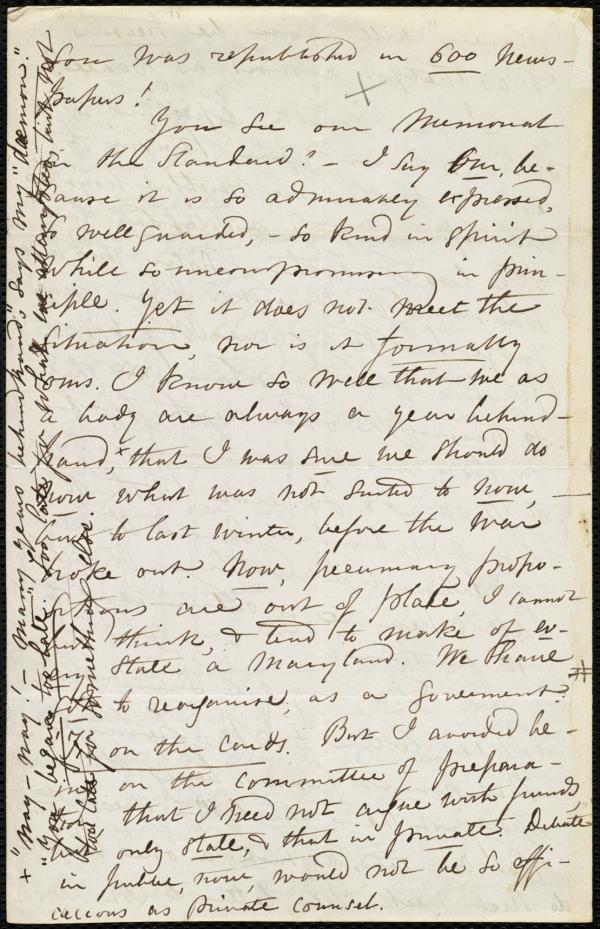 son was republished in 600 news-
papers!
You see our Memorial
in the Standard? - I say Our, be-
cause it is so admirably expressed,
so well guarded, - so kind in spirit
while so uncompromising in prin-
ciple. Yet it does not meet the
situation, nor is it formally
ours. I know so well that we as
a body are always a year behind-
hand,+ that I was sure we should do
now what was not suited to now, -
but to last winter, before the war
broke out. Now, pecuniary propo-
sitions are out of place, I cannot
but think, & tend to make of ev-
ery State a Maryland. We shall
to reorganise, as a government.
on the cards. But I avoided be-
ing on the committee of prepara-
that I need not argue with friends
only state, & that in private. Debate
in public, now, would not be so effi-
cacious as private counsel.
+ "Nay - nay! - Many years behindhand," says my "daemon."
"You began too late: too late for
too late for something else.